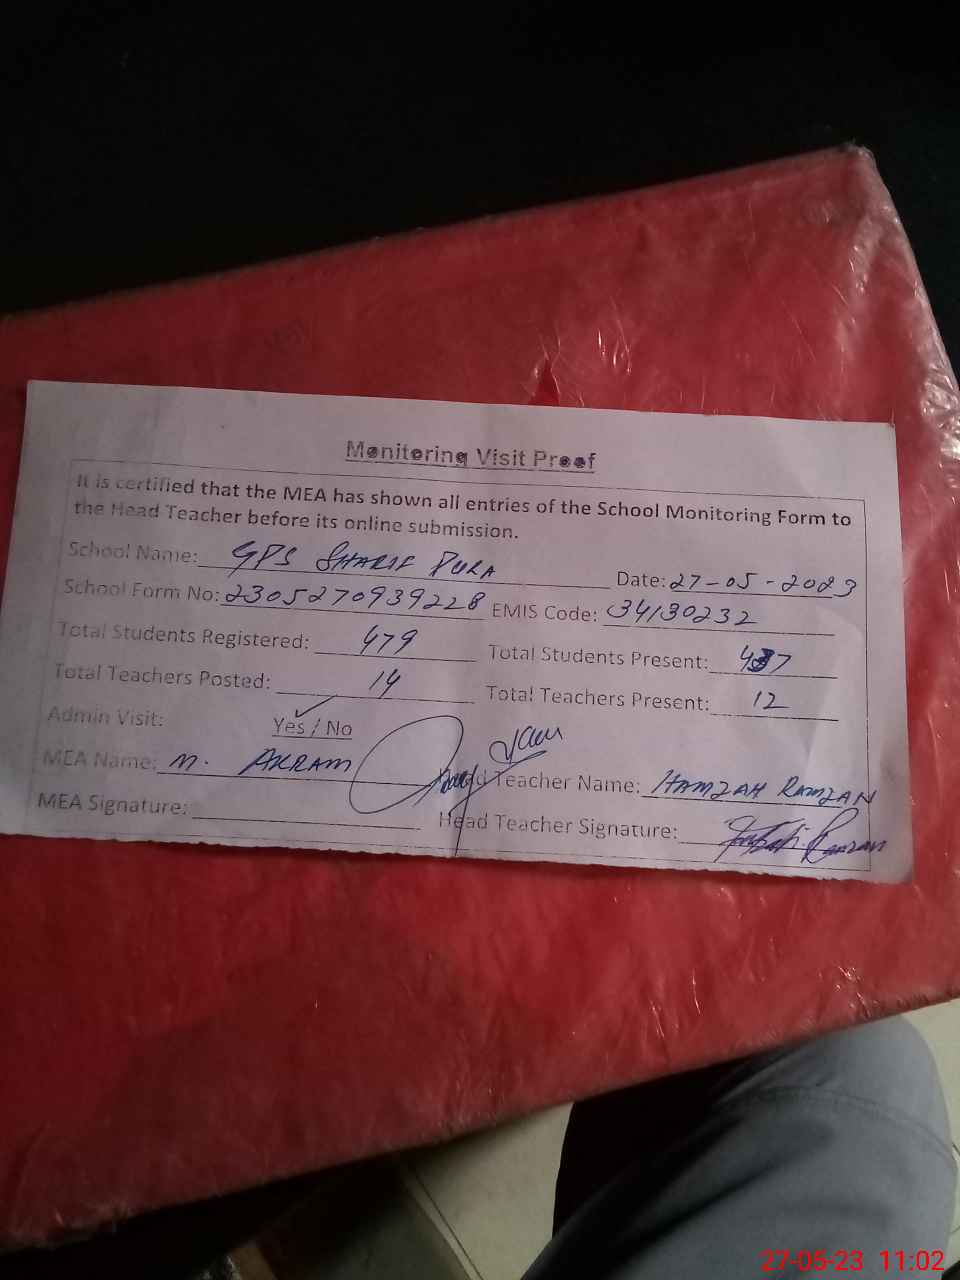 Monitoring Visit Proof
It is certified that the MEA has shown all entries of the School Monitoring Form to
the Head Teacher before its online submission.
School Name: GPS SHARIF PURA Date: 27-05-2023
School Form No: 2305270939228 EMIS Code: 34130232
Total Students Registered: 479 Total Students Present: 437
Total Teachers Posted: 14 Total Teachers Present: 12
Admin Visit: Yes / No
MEA Name: M. AKRAM Head Teacher Name: HAMZAH RAMZAN
MEA Signature: Head Teacher Signature:
27-05-23 11:02